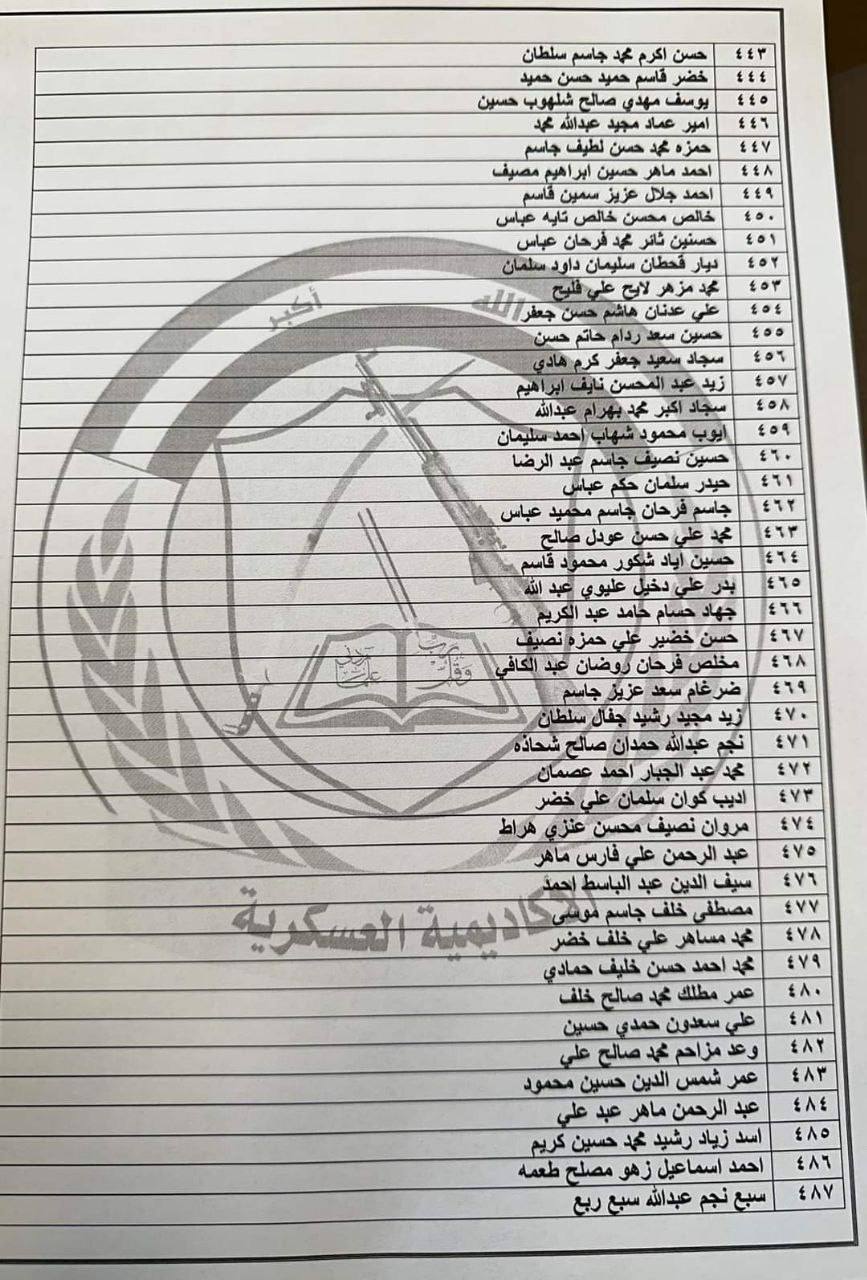 ٤٤٣ حسن اكرم محمد جاسم سلطان
٤٤٤ خضر قاسم حميد حسن حميد
٤٤٥ يوسف مهدي صالح شلهوب حسين
٤٤٦ امير عماد مجيد عبدالله محمد
٤٤٧ حمزه محمد حسن لطيف جاسم
٤٤٨ احمد ماهر حسين ابراهيم مصيف
٤٤٩ احمد جلال عزيز سمين قاسم
٤٥٠ خالص محسن خالص تايه عباس
٤٥١ حسنين ثائر محمد فرحان عباس
٤٥٢ ديار قحطان سليمان داود سلمان
٤٥٣ محمد مزهر لايح علي فليح
٤٥٤ علي عدنان هاشم حسن جعفر
٤٥٥ حسين سعد ردام حاتم حسن
٤٥٦ سجاد سعيد جعفر كرم هادي
٤٥٧ زيد عبد المحسن نايف ابراهيم
٤٥٨ سجاد اكبر محمد بهرام عبدالله
٤٥٩ ايوب محمود شهاب احمد سليمان
٤٦٠ حسين نصيف جاسم عبد الرضا
٤٦١ حيدر سلمان حكم عباس
٤٦٢ جاسم فرحان جاسم محميد عباس
٤٦٣ محمد علي حسن عودل صالح
٤٦٤ حسين اياد شكور محمود قاسم
٤٦٥ بدر علي دخيل عليوي عبد الله
٤٦٦ جهاد حسام حامد عبد الكريم
٤٦٧ حسن خضير علي حمزه نصيف
٤٦٨ مخلص فرحان روضان عبد الكافي
٤٦٩ ضرغام سعد عزيز جاسم
٤٧٠ زيد مجيد رشيد جفال سلطان
٤٧١ نجم عبدالله حمدان صالح شحاذه
٤٧٢ محمد عبد الجبار احمد عصمان
٤٧٣ اديب كوان سلمان علي خضر
٤٧٤ مروان نصيف محسن عنزي هراط
٤٧٥ عبد الرحمن علي فارس ماهر
٤٧٦ سيف الدين عبد الباسط احمد
٤٧٧ مصطفى خلف جاسم موسى
٤٧٨ محمد مساهر علي خلف خضر
٤٧٩ محمد احمد حسن خليف حمادي
٤٨٠ عمر مطلك محمد صالح خلف
٤٨١ علي سعدون حمدي حسين
٤٨٢ وعد مزاحم محمد صالح علي
٤٨٣ عمر شمس الدين حسين محمود
٤٨٤ عبد الرحمن ماهر عبد علي
٤٨٥ اسد زياد رشيد محمد حسين كريم
٤٨٦ احمد اسماعيل زهو مصلح طعمه
٤٨٧ سبع نجم عبدالله سبع ربع
الله أكبر
وقل رب زدني علما
الاكاديمية العسكرية